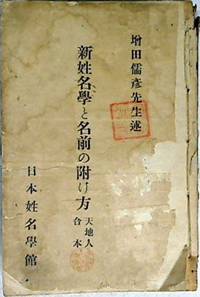 增田儒彦先生述
新姓名學と名前の附け方
天地人
合本
日本姓名學館